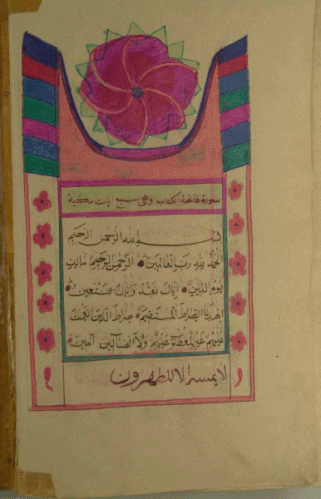 سورة فاتحة الكتاب وهي سبع ايات مكية
بسم الله الرحمن الرحيم
الحمد لله رب العالمين الرحمن الرحيم مالك
يوم الدين اياك نعبد واياك نستعين
اهدنا الصراط المستقيم صراط الذين انعمت
عليهم غير المغضوب عليهم ولا الضالين آمين
لا يمسه الا المطهرون